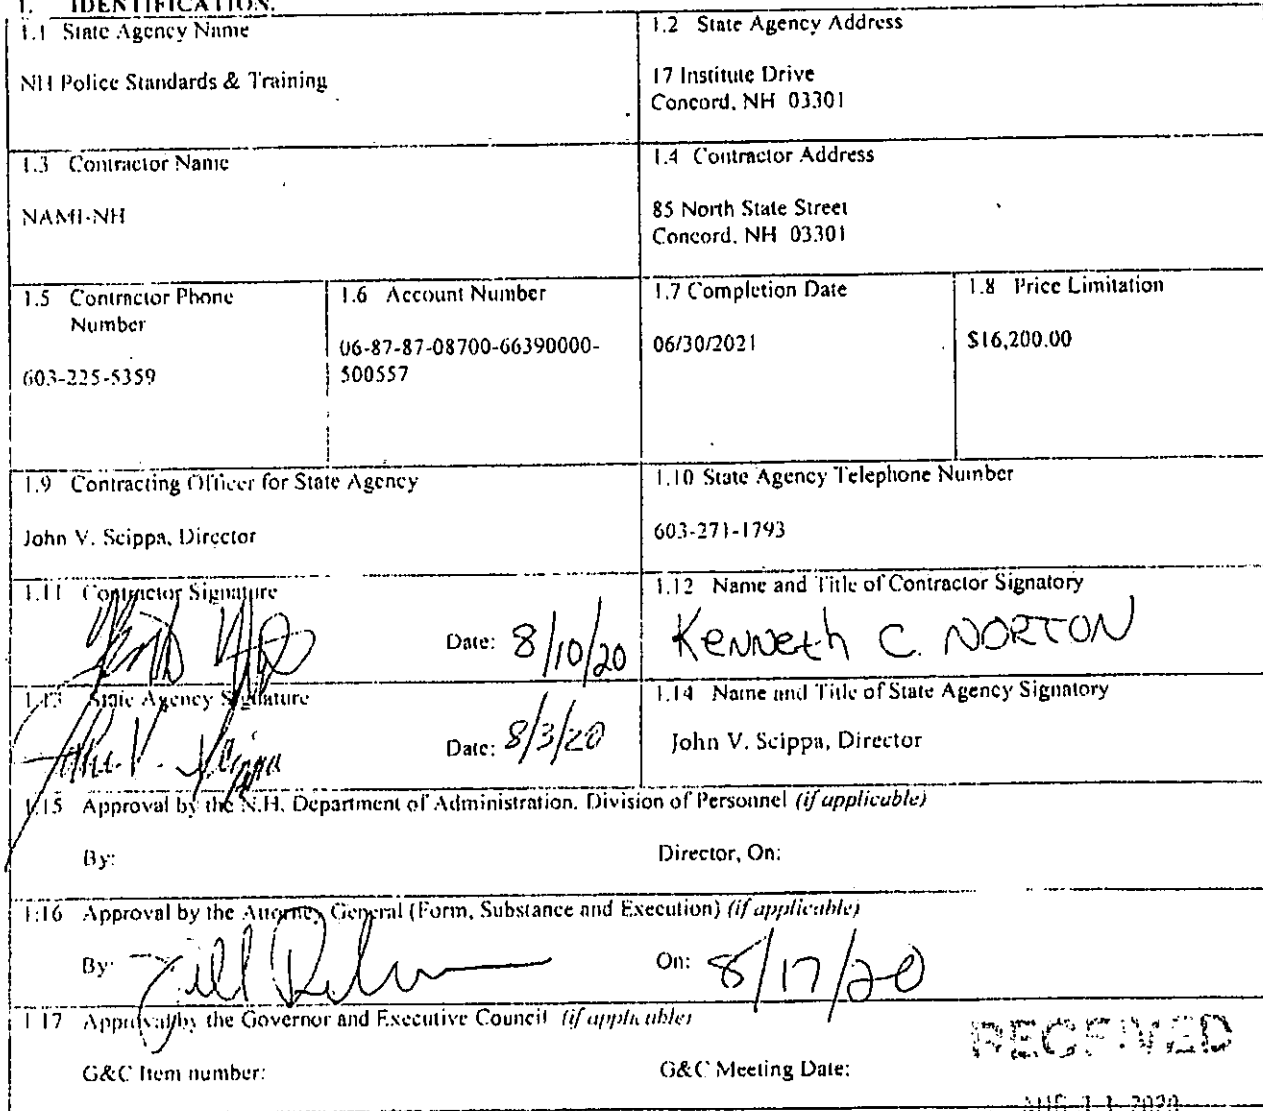 1. IDENTIFICATION.
1.1 State Agency Name
NH Police Standards & Training
1.2 State Agency Address
17 Institute Drive
Concord, NH 03301
1.3 Contractor Name
NAMI-NH
1.4 Contractor Address
85 North State Street
Concord, NH 03301
1.5 Contractor Phone
Number
603-225-5359
1.6 Account Number
06-87-87-08700-66390000-
500557
1.7 Completion Date
06/30/2021
1.8 Price Limitation
$16,200.00
1.9 Contracting Officer for State Agency
John V. Scippa, Director
1.10 State Agency Telephone Number
603-271-1793
1.11 Contractor Signature
Date: 8/10/20
1.12 Name and Title of Contractor Signatory
Kenneth C. NORTON
1.13 State Agency Signature
Date: 8/3/20
1.14 Name and Title of State Agency Signatory
John V. Scippa, Director
1.15 Approval by the N.H. Department of Administration, Division of Personnel (if applicable)
By:
Director, On:
1.16 Approval by the Attorney General (Form, Substance and Execution) (if applicable)
By:
On: 8/17/20
1.17 Approval by the Governor and Executive Council (if applicable)
G&C Item number:
G&C Meeting Date:
RECEIVED
2020